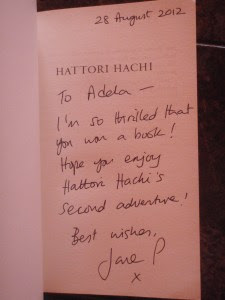 28 August 2012
HATTORI HACHI
To Adela —
I'm so thrilled that
you won a book!
Hope you enjoy
Hattori Hachi's
second adventure!
Best wishes,
Jane P
x